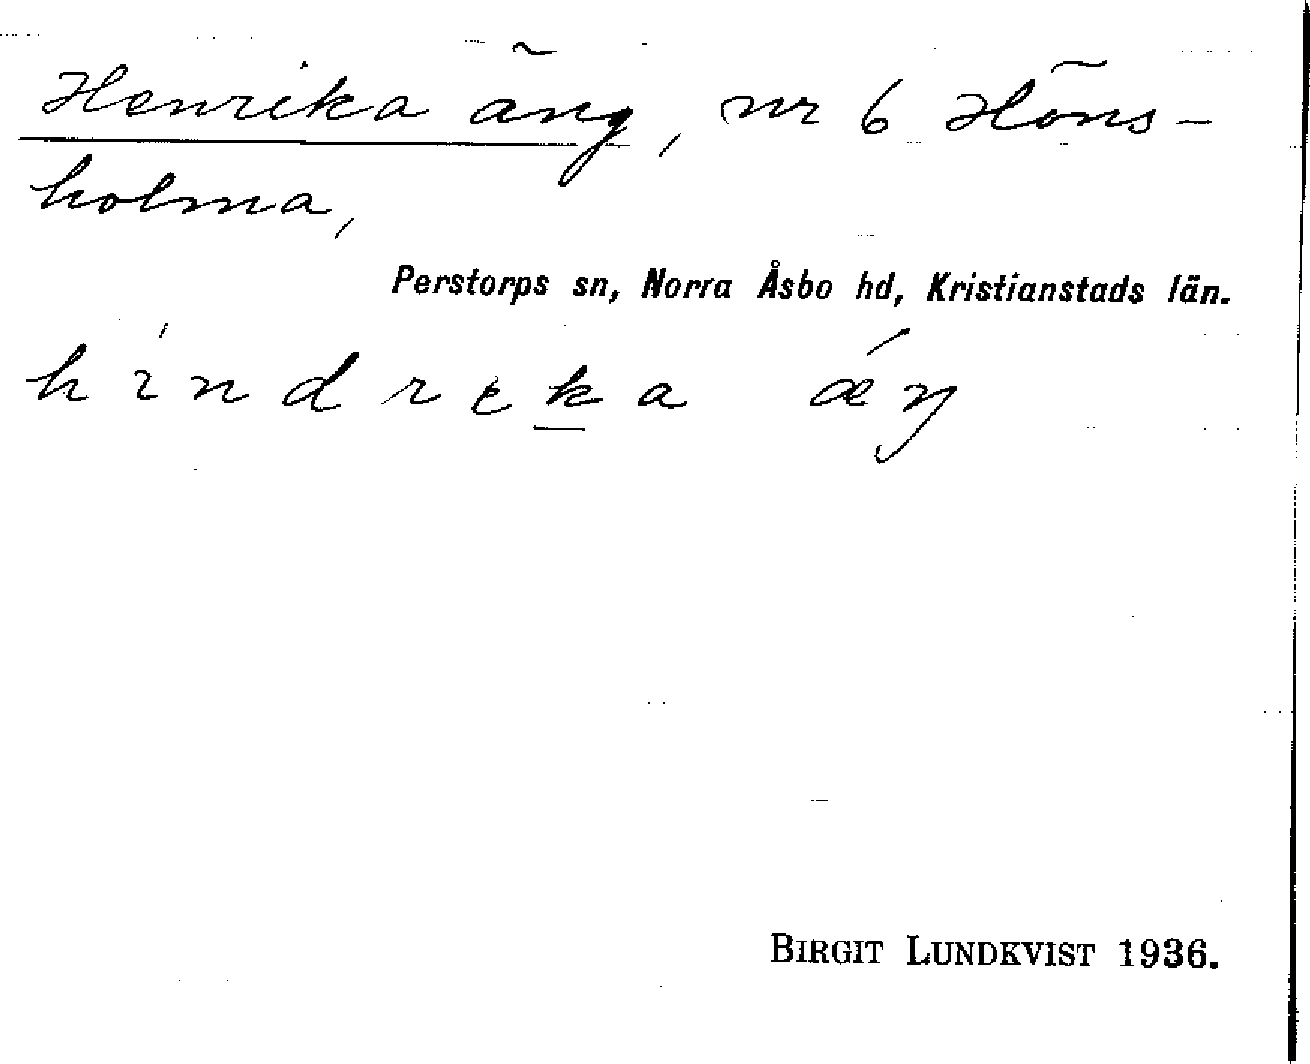 Henrika äng, nr 6 Höns-
holma,
Perstorps sn, Norra Åsbo hd, Kristianstads län.
híndrɛka ǽŋ
BIRGIT LUNDKVIST 1936.